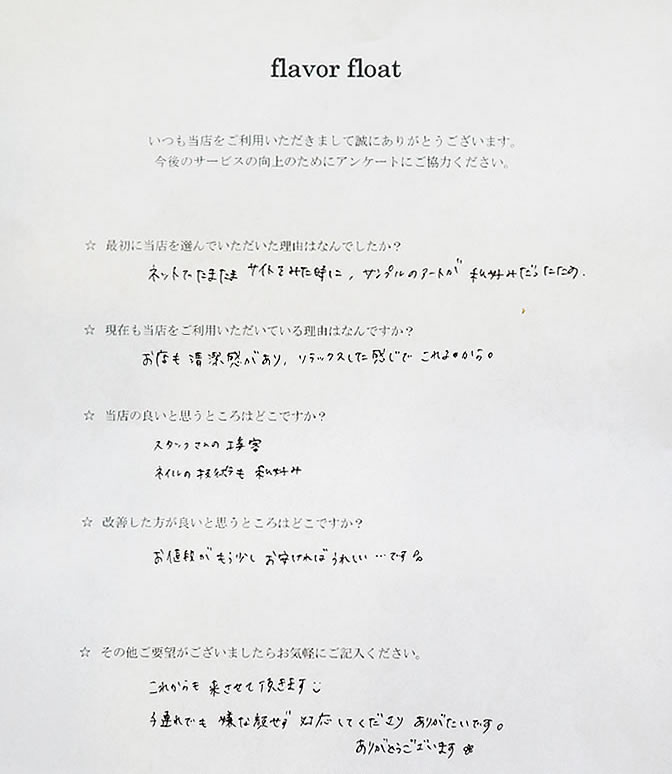 flavor float
いつも当店をご利用いただきまして誠にありがとうございます。
今後のサービスの向上のためにアンケートにご協力ください。
☆ 最初に当店を選んでいただいた理由はなんでしたか？
ネットでたまたま サイトをみた時に，サンプルのアートが 私好みだったため.
☆ 現在も当店をご利用いただいている理由はなんですか？
お店も 清潔感があり，リラックスした感じで これるから。
☆ 当店の良いと思うところはどこですか？
スタッフさんの 接客
ネイルの 技術も 私好み
☆ 改善した方が良いと思うところはどこですか？
お値段が もう少し お安ければ うれしい…です
☆ その他ご要望がございましたらお気軽にご記入ください。
これからも 来させて 頂きます
子連れでも 嫌な顔せず 対応してくださり ありがたいです。
ありがとうございます